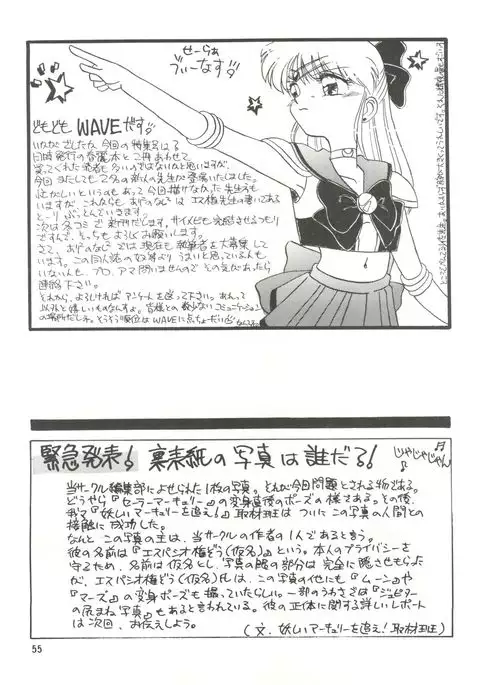 せーらぁ
びぃーなす!!
どもども WAVEだす!!
いかがでしたか、今回の特集号は
日時発行の春麗本と二冊あわせて
買ってくれた読者も多いのではないかと思いますが、
今回またしても2名の新人の先生が登場いたしました。
忙がしいというのもあって今回描けなかった先生方も
いますが、これからも
とーりぶっとんでいきます。
次は冬コミで新刊だします。サイズとも完成させるつもり
ですんで、そちらもよろしくお願いします。
では現在、執筆者を大募集して
います。この同人誌の
いない人も、プロ、アマ問いませんのでその気があったら
連絡下さい。
それから、よろしければアンケートを送って下さい。
以外と嬉しいものなんすよ。皆様との数少ないコミュニケーション
の場所だしネ。
緊急発表! 裏表紙の写真は誰だろ!
じゃじゃじゃん
当サークル編集部によせられた1枚の写真。それが今回問題とされる物である。
どうやら『セーラーマーキュリー』の変身直後のポーズの様である。その後、
我々『妖しいマーキュリーを追え!』取材班は ついにこの写真の人間との
接触に成功した。
なんとこの写真の主は、当サークルの作者の1人であると言う。
彼の名前は『エスパシオ梅どう(仮名)』という。本人のプライバシーを
守るため、名前は仮名とし、写真の眼の部分は完全に隠させもらった
が、エスパシオ梅どう(仮名)氏は、この写真の他にも『ムーン』や
『マーズ』の変身ポーズも撮っていたらしい。一部のうわさでは『ジュピター
の尻まね写真』もあると言われている。彼の正体に関する詳しいレポート
は次回、お伝えしよう。
(文.妖しいマーキュリーを追え!取材班)
55